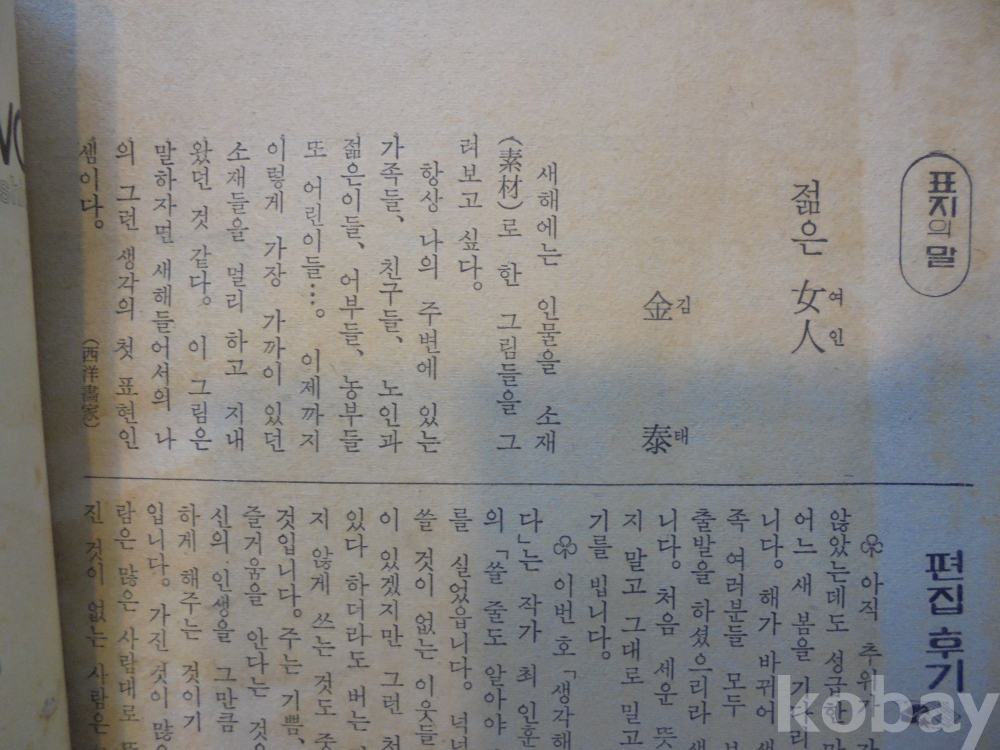 표지의 말
젊은 女人
여인
金 泰
김 태
새해에는 인물을 소재
(素材)로 한 그림들을 그
려보고 싶다.
항상 나의 주변에 있는
가족들, 친구들, 노인과
젊은이들, 어부들, 농부들
또 어린이들…. 이제까지
이렇게 가장 가까이 있던
소재들을 멀리 하고 지내
왔던 것 같다. 이 그림은
말하자면 새해들어서의 나
의 그런 생각의 첫 표현인
셈이다.
(西洋畵家)
편집 후기
아직 추위가
않았는데도 성급한
어느 새 봄을 기다리
니다. 해가 바뀌어
족 여러분들 모두
출발을 하셨으리라
니다. 처음 세운 뜻
지 말고 그대로 밀고
기를 빕니다.
이번호 「생각해
다」는 작가 최인훈
의 「쓸 줄도 알아야
를 실었읍니다. 넉넉
쓸 것이 없는 이웃들
이 있겠지만 그런
있다 하더라도 버는
지 않게 쓰는 것도
것입니다. 주는 기쁨,
즐거움을 안다는 것
신의 인생을 그만큼
하게 해주는 것이기
입니다. 가진 것이 많은
람은 많은 사람대로
진 것이 없는 사람은
kobay